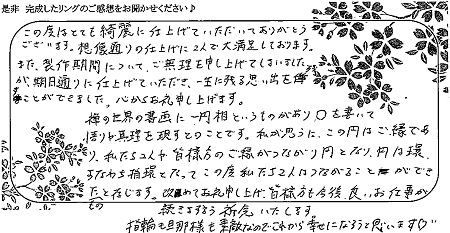 是非 完成したリングのご感想をお聞かせください♪
この度はとても綺麗に仕上げていただいてありがとう
ございます。想像通りの仕上りに2人で大満足しております。
また、製作期間について、ご無理を申してしまいました
が、期日通りに仕上げていただき、一生に残る思い出を
ことができました。心からお礼申し上げます。
禅の世界の書画に一円相というものがあり○を書いて
悟りや真理を現すとのことです。私が思うに、この円はご縁であ
り、私たち2人や皆様方のご縁がつながり円となり、円は環、
すなわち指環となって、この度私たち2人はつながること ができ
たものと存じます。改めてお礼申し上げ、皆様方も今後、良いお仕事が
続きますよう祈念いたします。
指輪も旦那様も素敵なのでこれから幸せになろうと思います♡